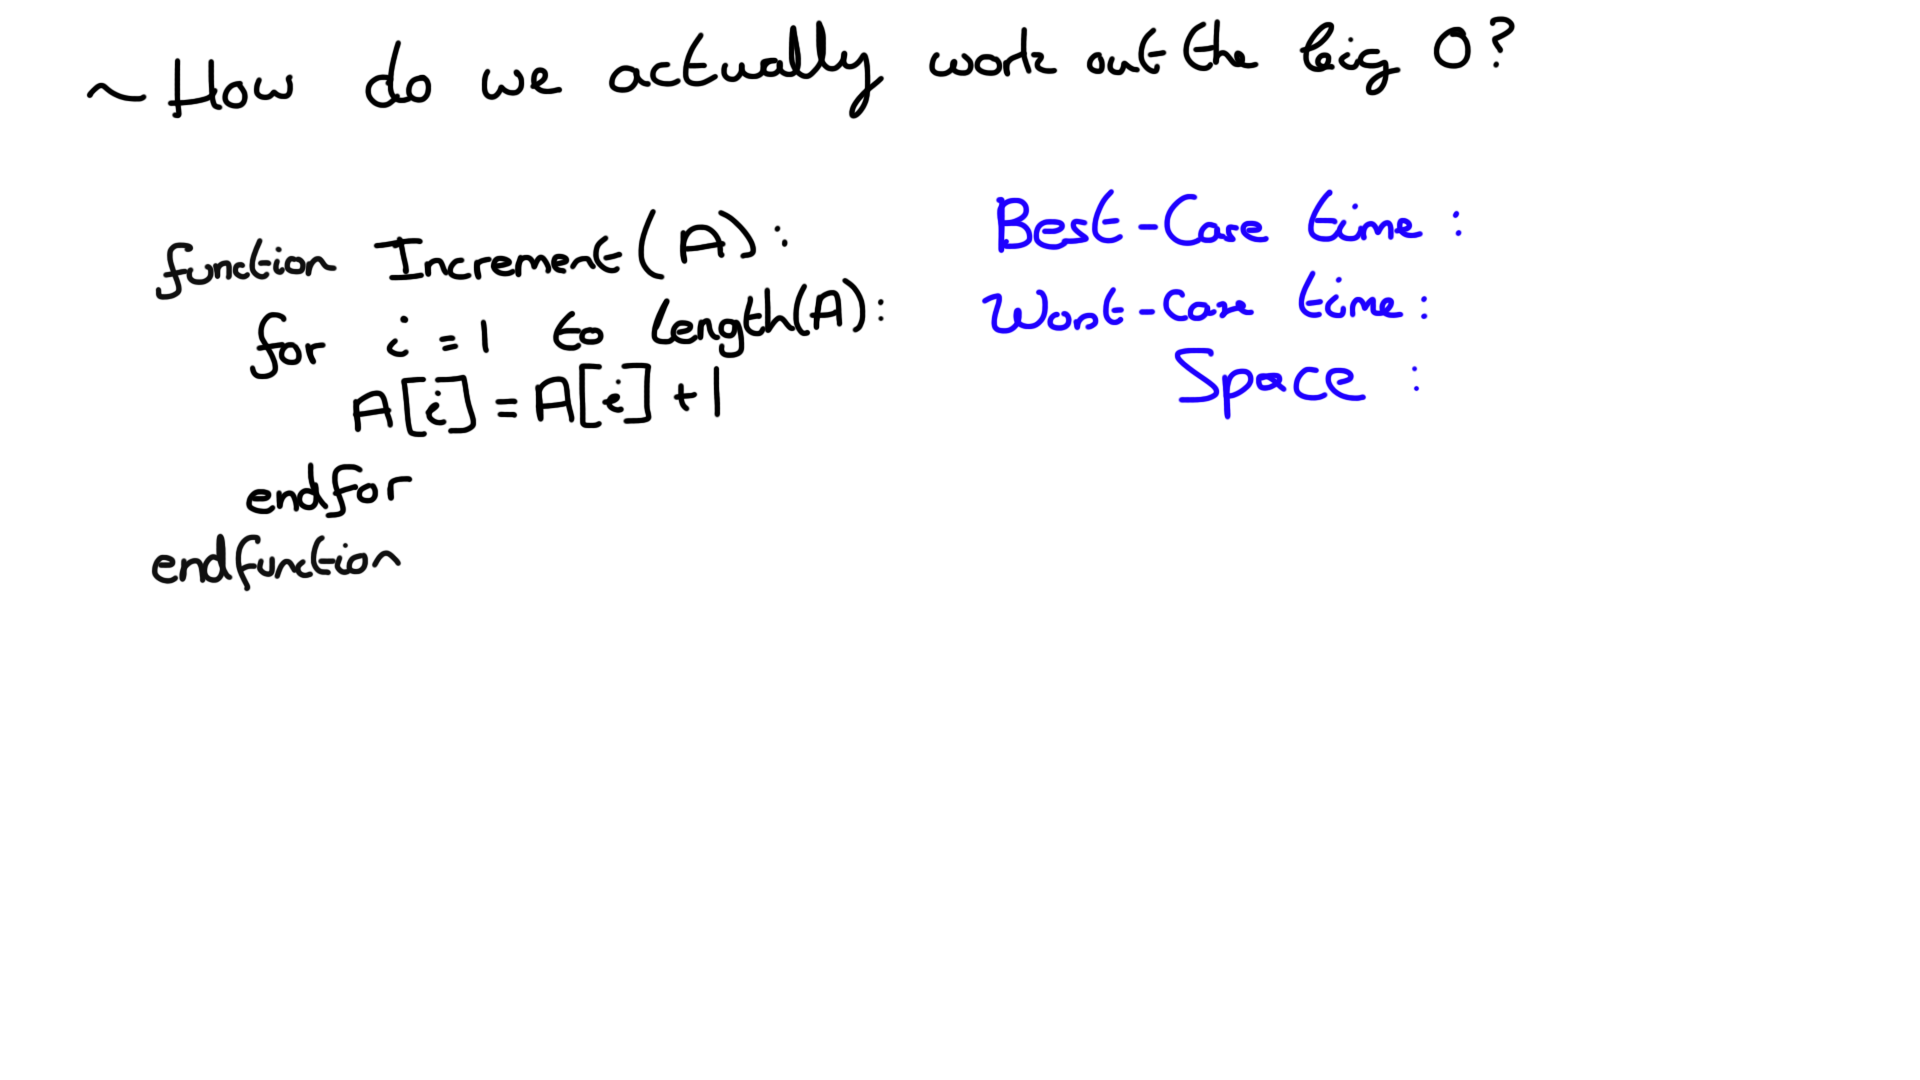 ~ How do we actually work out the big O?
function Increment(A):
for i = 1 to length(A):
A[i] = A[i] + 1
endfor
endfunction
Best-Case time:
Worst-Case time:
Space :